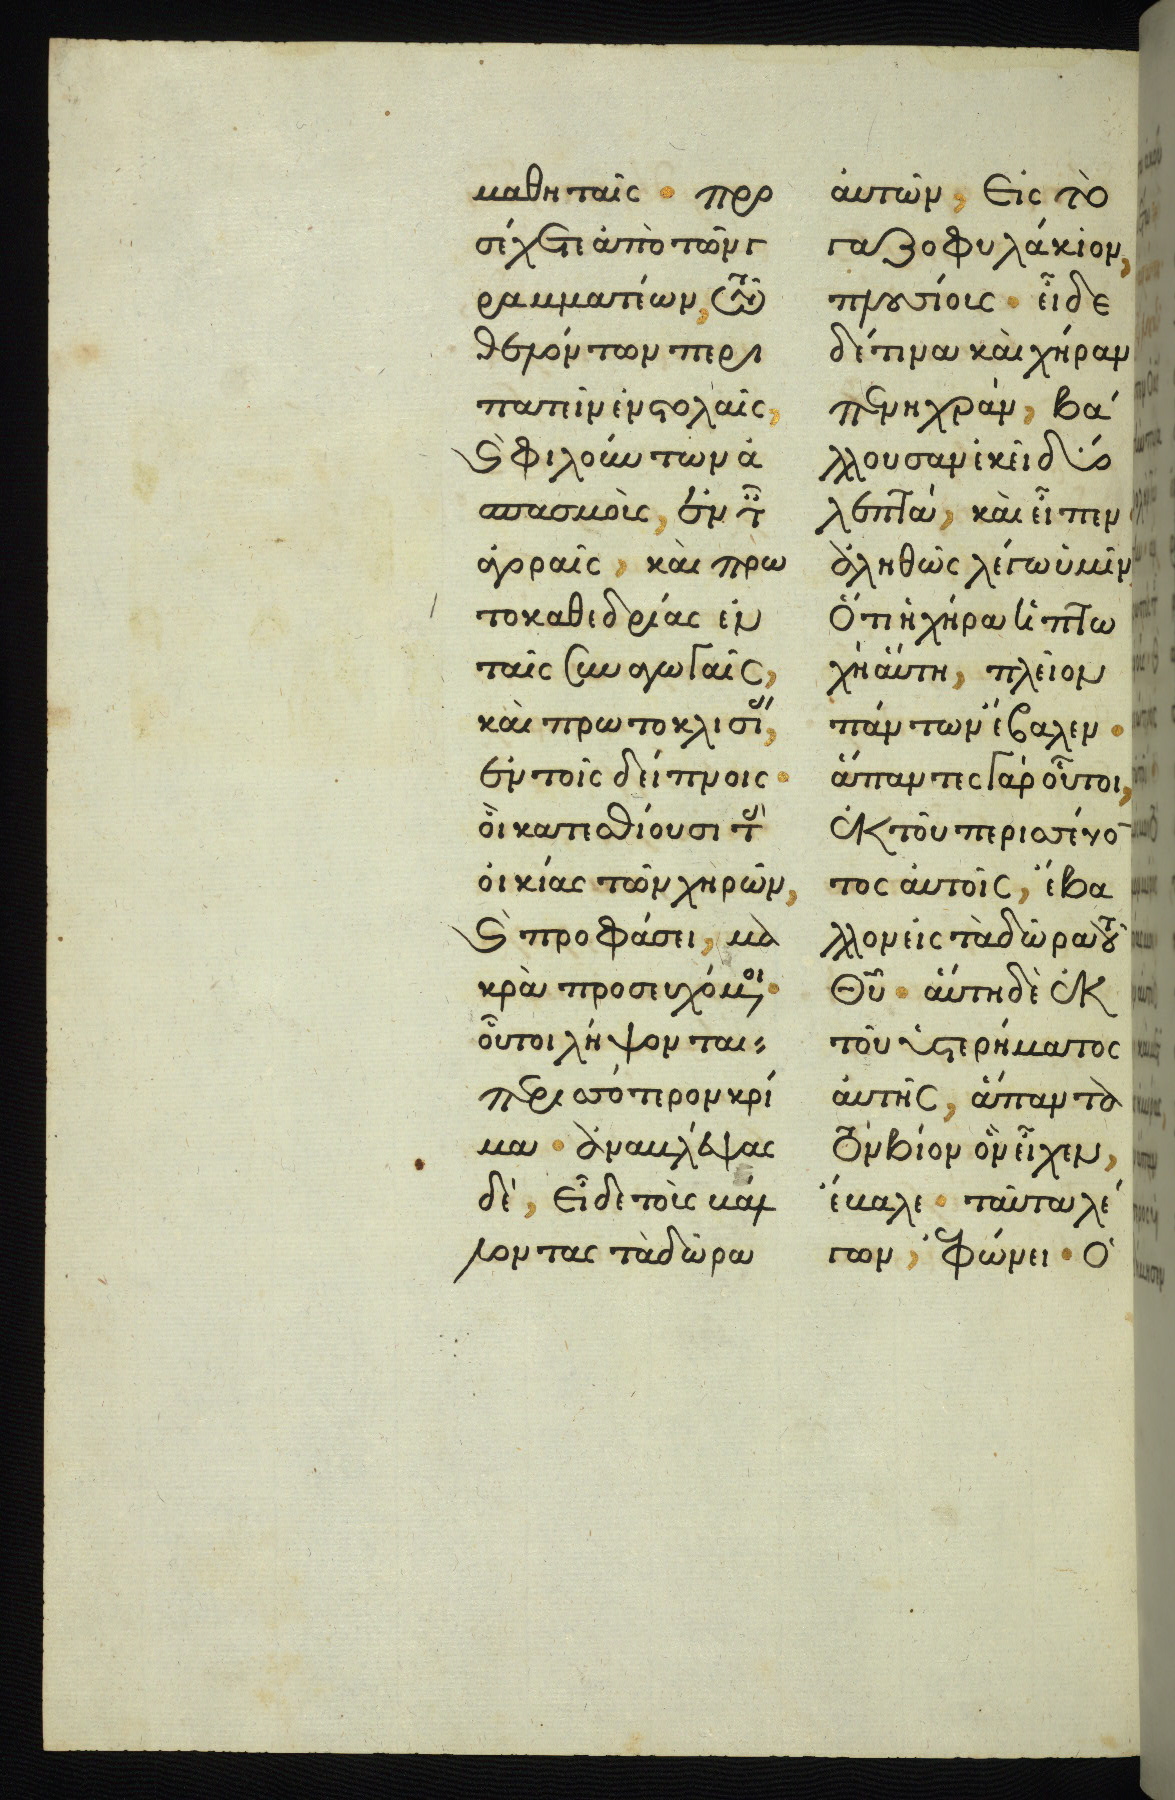 μαθηταῖς · προ
σέχετε ἀπὸ τῶν γ
ραμματέων, τῶν
θελόντων περι
πατεῖν ἐν στολαῖς,
καὶ φιλούντων ἀ
σπασμοὺς, ἐν τ
ἀγοραῖς, καὶ πρω
τοκαθεδρίας ἐν
ταῖς συναγωγαῖς,
καὶ πρωτοκλισί,
ἐν τοῖς δείπνοις ·
οἳ κατεσθίουσι τὰς
οἰκίας τῶν χηρῶν,
καὶ προφάσει, μα
κρὰ προσευχόμοι ·
οὗτοι λήψονται
περισσότερον κρί
μα · ἀναβλέψας
δὲ, εἶδε τοὺς βάλ
λοντας τὰ δῶρα
αὐτῶν, εἰς τὸ
γαζοφυλάκιον,
πλουσίους · εἶδε
δέ τινα καὶ χήραν
πενηχρὰν, βά
λλουσαν ἐκεῖ δύο
λεπτά, καὶ εἶπεν
ἀληθῶς λέγω ὑμῖν
ὅτι ἡ χήρα ἡ πτω
χὴ αὕτη, πλεῖον
πάντων ἔβαλεν ·
ἅπαντες γὰρ οὗτοι,
ἐκ τοῦ περισσεύο
τος αὐτοῖς, ἔβα
λλον εἰς τὰ δῶρα τοῦ
Θῦ · αὕτη δὲ ἐκ
τοῦ ὑστερήματος
αὐτῆς, ἅπαντα
τὸν βίον ὃν εἶχεν,
ἔβαλε · ταῦτα λέ
γων, ἐφώνει · Ὁ